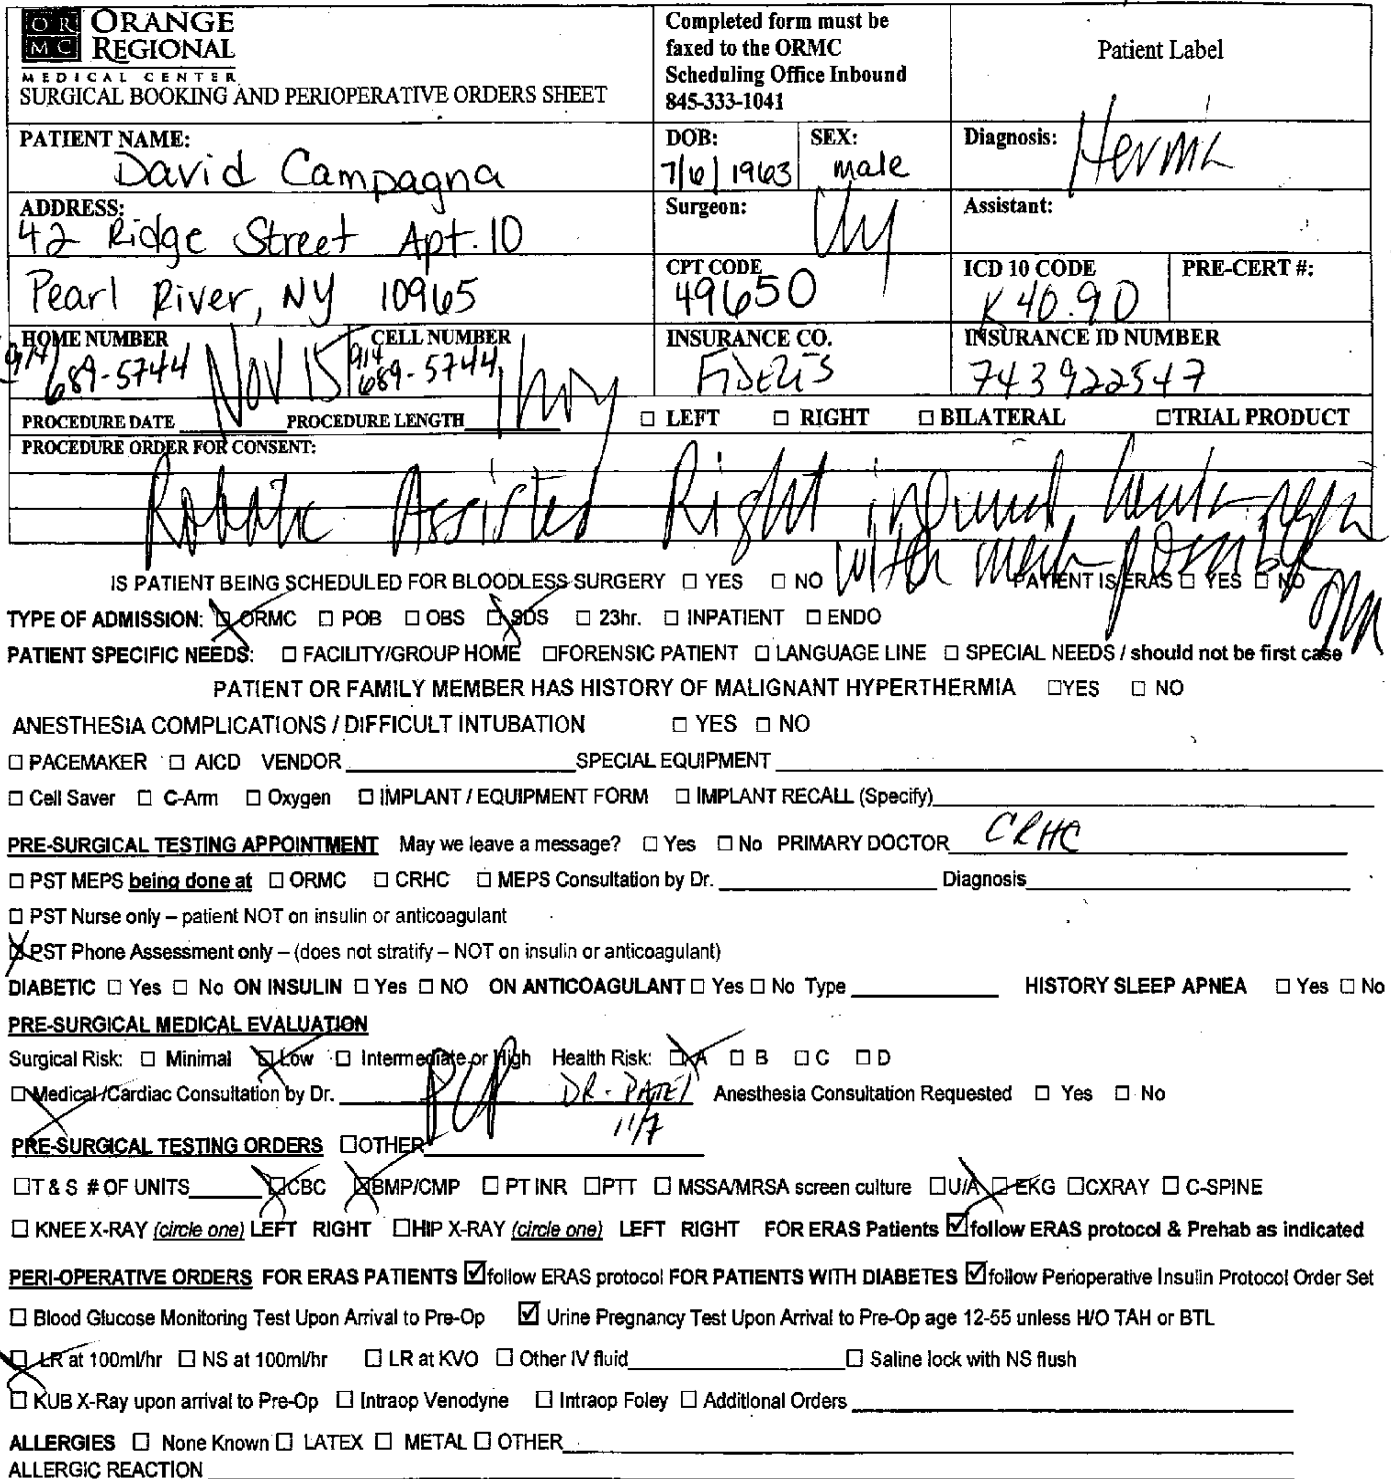 OR
MC
ORANGE
REGIONAL
MEDICAL CENTER
SURGICAL BOOKING AND PERIOPERATIVE ORDERS SHEET
Completed form must be
faxed to the ORMC
Scheduling Office Inbound
845-333-1041
Patient Label
PATIENT NAME:
David Campagna
DOB:
7/6/1963
SEX:
male
Diagnosis:
ADDRESS:
42 Ridge Street Apt. 10
Surgeon:
Assistant:
Pearl River, NY 10965
CPT CODE
49650
ICD 10 CODE
K40.90
PRE-CERT #:
HOME NUMBER
914/689-5744
CELL NUMBER
914 689-5744
INSURANCE CO.
FIDELIS
INSURANCE ID NUMBER
743922547
PROCEDURE DATE Nov 15 PROCEDURE LENGTH □ LEFT □ RIGHT □ BILATERAL □TRIAL PRODUCT
PROCEDURE ORDER FOR CONSENT:
Robotic Assisted Right inguinal
with mesh possible
open
IS PATIENT BEING SCHEDULED FOR BLOODLESS SURGERY □ YES □ NO PATIENT IS ERAS □ YES □ NO
TYPE OF ADMISSION: ☒ ORMC □ POB □ OBS ☒ SDS □ 23hr. □ INPATIENT □ ENDO
PATIENT SPECIFIC NEEDS: □ FACILITY/GROUP HOME □FORENSIC PATIENT □ LANGUAGE LINE □ SPECIAL NEEDS / should not be first case
PATIENT OR FAMILY MEMBER HAS HISTORY OF MALIGNANT HYPERTHERMIA □YES □ NO
ANESTHESIA COMPLICATIONS / DIFFICULT INTUBATION □ YES □ NO
□ PACEMAKER □ AICD VENDOR SPECIAL EQUIPMENT
□ Cell Saver □ C-Arm □ Oxygen □ IMPLANT / EQUIPMENT FORM □ IMPLANT RECALL (Specify)
PRE-SURGICAL TESTING APPOINTMENT May we leave a message? □ Yes □ No PRIMARY DOCTOR CRHC
□ PST MEPS being done at □ ORMC □ CRHC □ MEPS Consultation by Dr. Diagnosis
□ PST Nurse only – patient NOT on insulin or anticoagulant
☒ PST Phone Assessment only – (does not stratify – NOT on insulin or anticoagulant)
DIABETIC □ Yes □ No ON INSULIN □ Yes □ NO ON ANTICOAGULANT □ Yes □ No Type HISTORY SLEEP APNEA □ Yes □ No
PRE-SURGICAL MEDICAL EVALUATION
Surgical Risk: □ Minimal ☒ Low □ Intermediate or High Health Risk: ☒ A □ B □ C □ D
☒ Medical /Cardiac Consultation by Dr. PCP DR. PATEL Anesthesia Consultation Requested □ Yes □ No
11/7
PRE-SURGICAL TESTING ORDERS □OTHER
□T & S # OF UNITS ☒ CBC ☒ BMP/CMP □ PT INR □PTT □ MSSA/MRSA screen culture □U/A ☒ EKG □CXRAY □ C-SPINE
□ KNEE X-RAY (circle one) LEFT RIGHT □HIP X-RAY (circle one) LEFT RIGHT FOR ERAS Patients ☑follow ERAS protocol & Prehab as indicated
PERI-OPERATIVE ORDERS FOR ERAS PATIENTS ☑follow ERAS protocol FOR PATIENTS WITH DIABETES ☑follow Perioperative Insulin Protocol Order Set
□ Blood Glucose Monitoring Test Upon Arrival to Pre-Op ☑ Urine Pregnancy Test Upon Arrival to Pre-Op age 12-55 unless H/O TAH or BTL
☒ LR at 100ml/hr □ NS at 100ml/hr □ LR at KVO □ Other IV fluid □ Saline lock with NS flush
□ KUB X-Ray upon arrival to Pre-Op □ Intraop Venodyne □ Intraop Foley □ Additional Orders
ALLERGIES □ None Known □ LATEX □ METAL □ OTHER
ALLERGIC REACTION